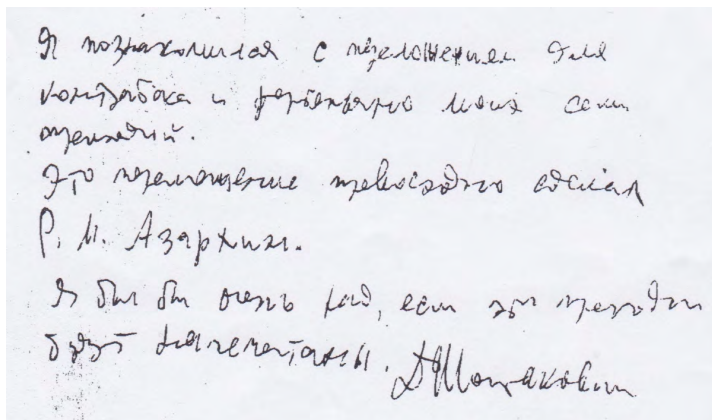 Я познакомился с переложением для
контрабаса и фортепьяно моих семи
прелюдий.
Это переложение превосходно сделал
Р. М. Азархин.
Я был бы очень рад, если эти прелюдии
будут напечатаны. Д Шостакович